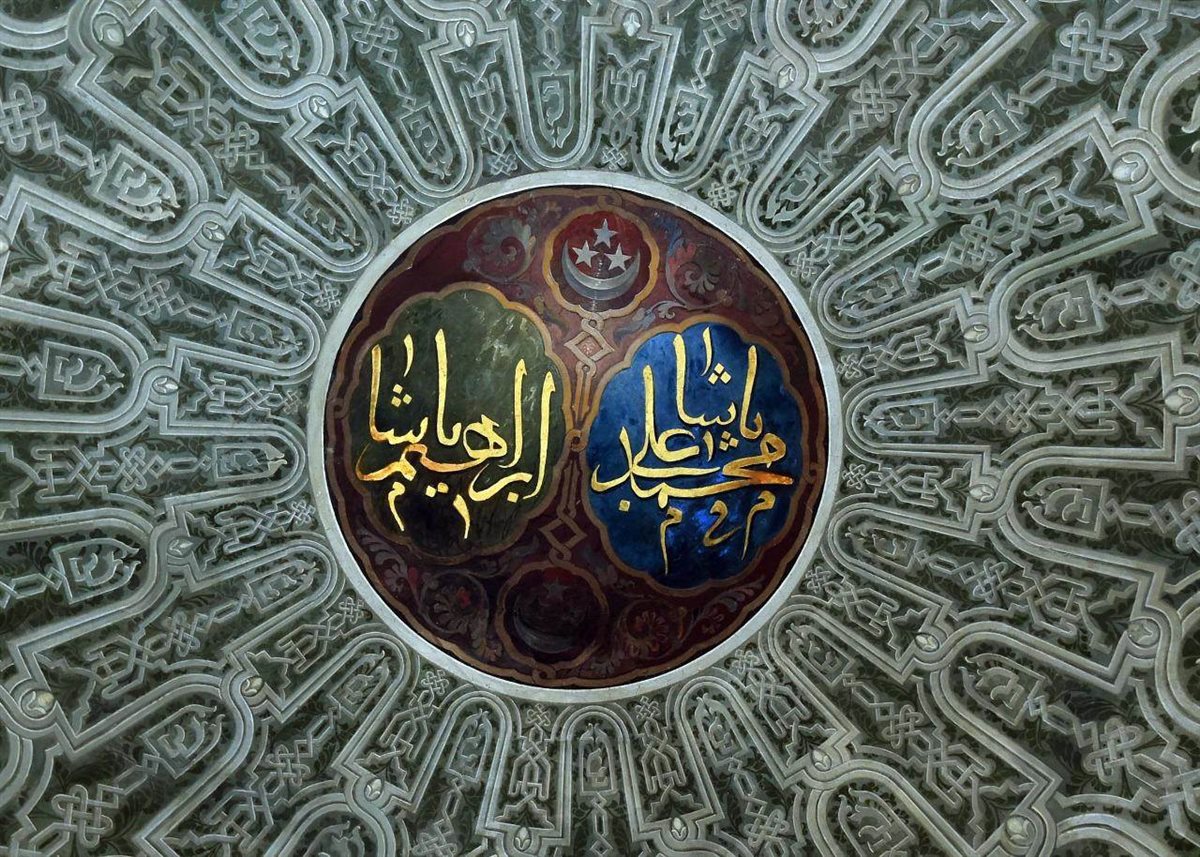 محمد علي باشا
ابراهيم باشا